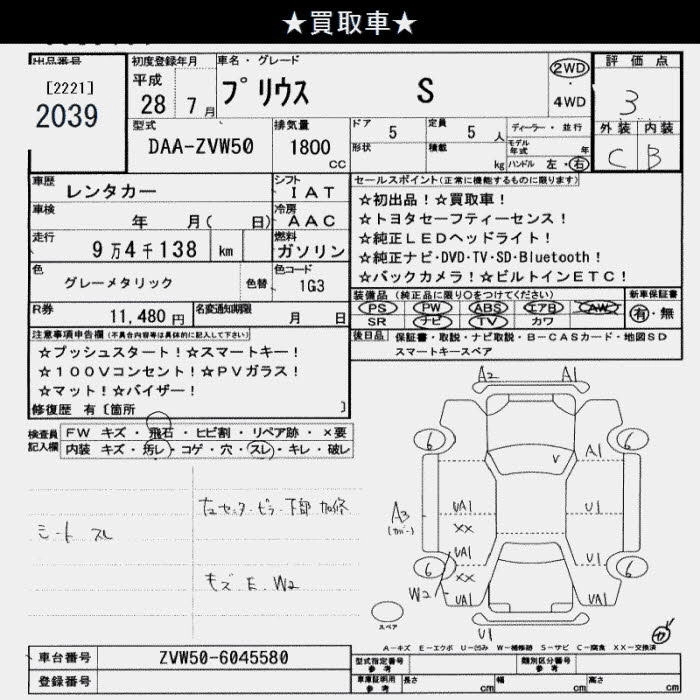 ★買取車★
出品番号
[2221]
2039
初度登録年月
平成
28 7月
車名・グレード
プリウス S
2WD
・
4WD
評価点
3
外装 内装
C B
型式
DAA-ZVW50
排気量
1800
CC
ドア 5
定員 5人
形状
積載 kg
ディーラー・並行
モデル年式 年
ハンドル 左・右
車歴
レンタカー
シフト
IAT
車検
年 月( 日)
冷房
AAC
走行
9万4千138 km
燃料
ガソリン
色
グレーメタリック
色替
色コード
1G3
R券
11,480円
名変通知期限
月 日
セールスポイント(正常に機能するものに限ります)
☆初出品!☆買取車!
☆トヨタセーフティーセンス!
☆純正LEDヘッドライト!
☆純正ナビ・DVD・TV・SD・Bluetooth!
☆バックカメラ!☆ビルトインETC!
装備品(純正品に限り○をつけてください)
PS PW ABS エアB AW
SR ナビ TV カワ
新車保証書
有・無
後日品 保証書・取説・ナビ取説・B-CASカード・地図SD
スマートキースペア
注意事項申告欄(不具合内容等は具体的に記入して下さい)
☆プッシュスタート!☆スマートキー!
☆100Vコンセント!☆PVガラス!
☆マット!☆バイザー!
修復歴 有〔箇所 〕
検査員
記入欄
FW キズ・飛石・ヒビ割・リペア跡・×要
内装 キズ・汚レ・コゲ・穴・スレ・キレ・破レ
シート スレ
左センターピラー下部加修
キズ.E.W2
A2 A1
6 6
A1
V
A3
(カバー)
UA1
XX
U1
UA1
XX
U1
6 6
W2
UA1 UA1
U1
スペア
A-キズ E-エクボ U-凹み W-補修跡 S-サビ C-腐食 XX-交換済
車台番号 ZVW50-6045580
登録番号
型式指定番号
参考
類別区分番号
参考
車庫証明用
参考
長さ cm 幅 cm 高さ cm